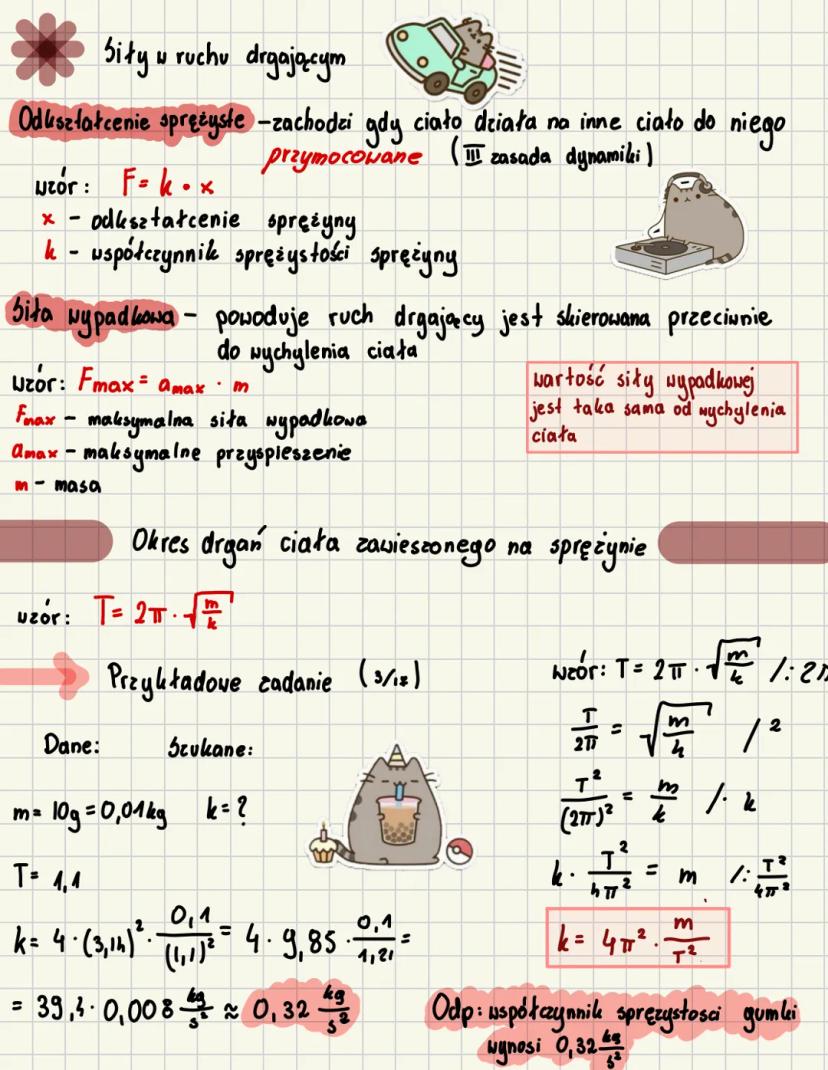 Siły w ruchu drgającym
Odkształcenie sprężyste - zachodzi gdy ciało działa na inne ciało do niego
przymocowane (III zasada dynamiki)
wzór: F = k • x
x - odkształcenie sprężyny
k - współczynnik sprężystości sprężyny
Siła wypadkowa - powoduje ruch drgający jest skierowana przeciwnie
do wychylenia ciała
wzór: Fmax = amax · m
Fmax - maksymalna siła wypadkowa
amax - maksymalne przyspieszenie
m - masa
wartość siły wypadkowej
jest taka sama od wychylenia
ciała
Okres drgań ciała zawieszonego na sprężynie
wzór: T = 2π · √(m/k)
Przykładowe zadanie
Dane: Szukane:
m = 10g = 0,01kg k = ?
T = 1,1
k = 4 · (3,14)² · 0,1/(1,1)² = 4 · 9,85 · 0,1/1,21 =
= 39,4 · 0,008 kg/s² ≈ 0,32 kg/s²
wzór: T = 2π · √(m/k) /: 2π
T/2π = √(m/k) /²
T²/(2π)² = m/k /· k
k · T²/4π² = m /: T²/4π²
k = 4π² · m/T²
Odp: współczynnik sprężystosci gumki
wynosi 0,32 kg/s²